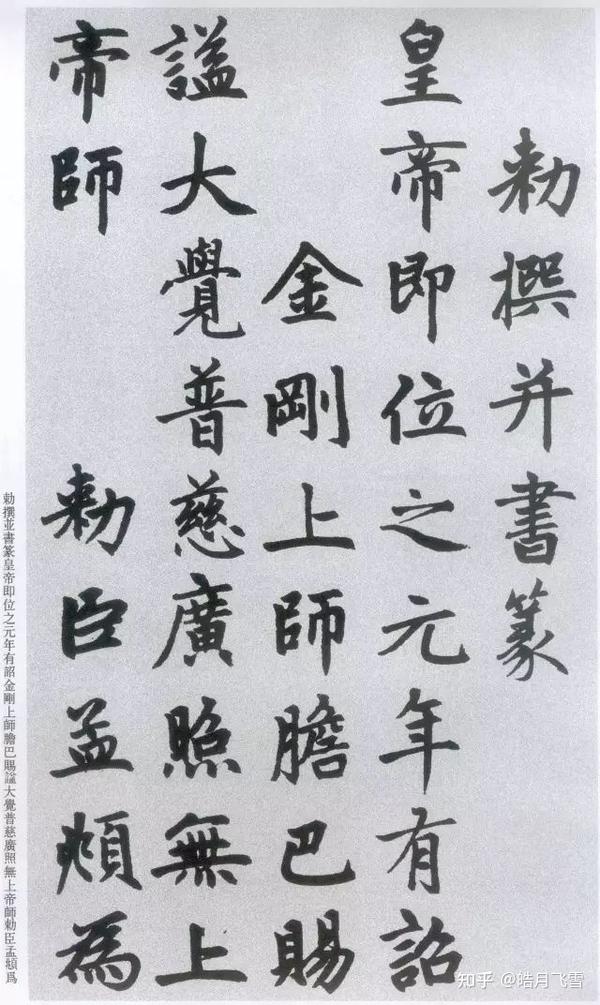 勅撰并書篆
皇帝即位之元年有詔
金剛上師膽巴賜
謚大覺普慈廣照無上
帝師 勅臣孟頫為
勅撰並書篆皇帝即位之元年有詔金剛上師膽巴賜謚大覺普慈廣照無上帝師勅臣孟頫爲
知乎 @皓月飞雪